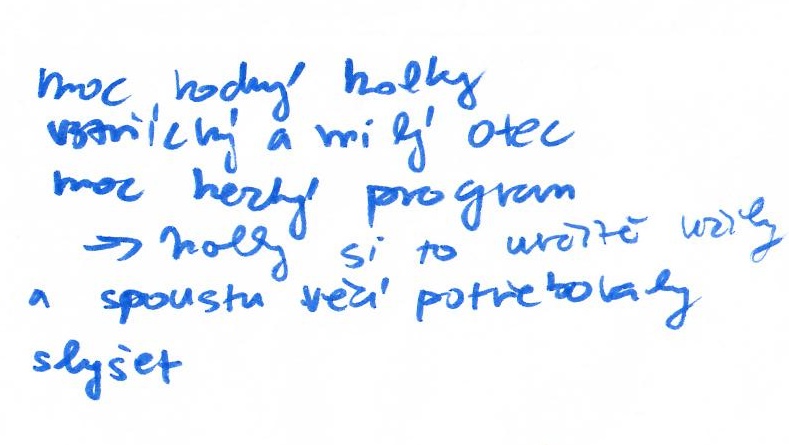 moc hodný holky
vstřícký a milý otec
moc hezký program
→ holky si to určitě užily
a spoustu věcí potřebovaly
slyšet